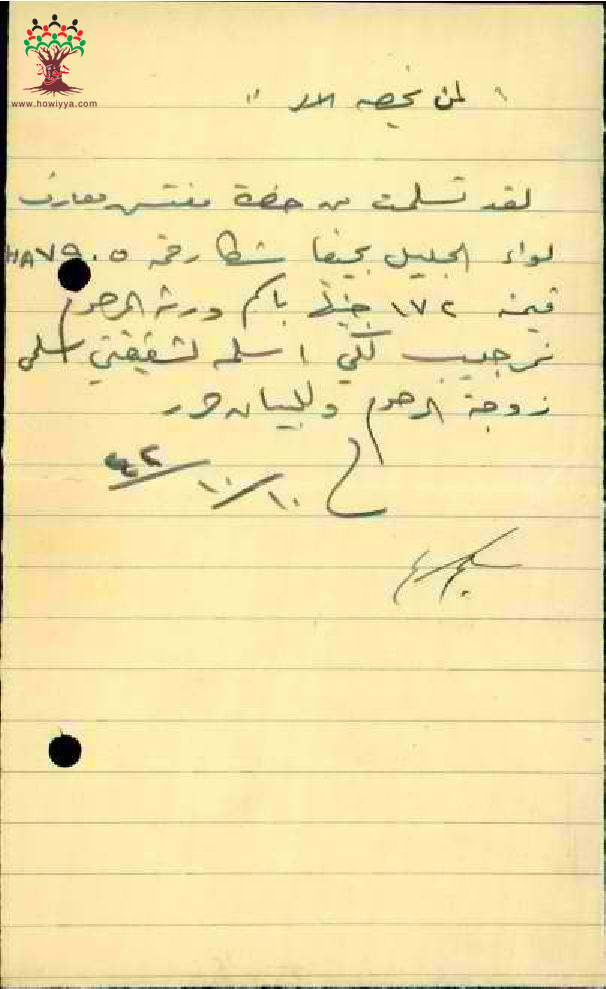 www.howiyya.com
" لمن يخصه الامر "
لقد تسلمت من حضرة مفتش معارف
لواء الجليل بحيفا شكا رقم HA٧٩٠٥
قيمته ١٧٢ جنيها باسم ورثة المرحوم
نجيب لكي اسلمه لشقيقتي سلمى
زوجة المرحوم وللبيان حرر
في ١٠/١٠/٤٢